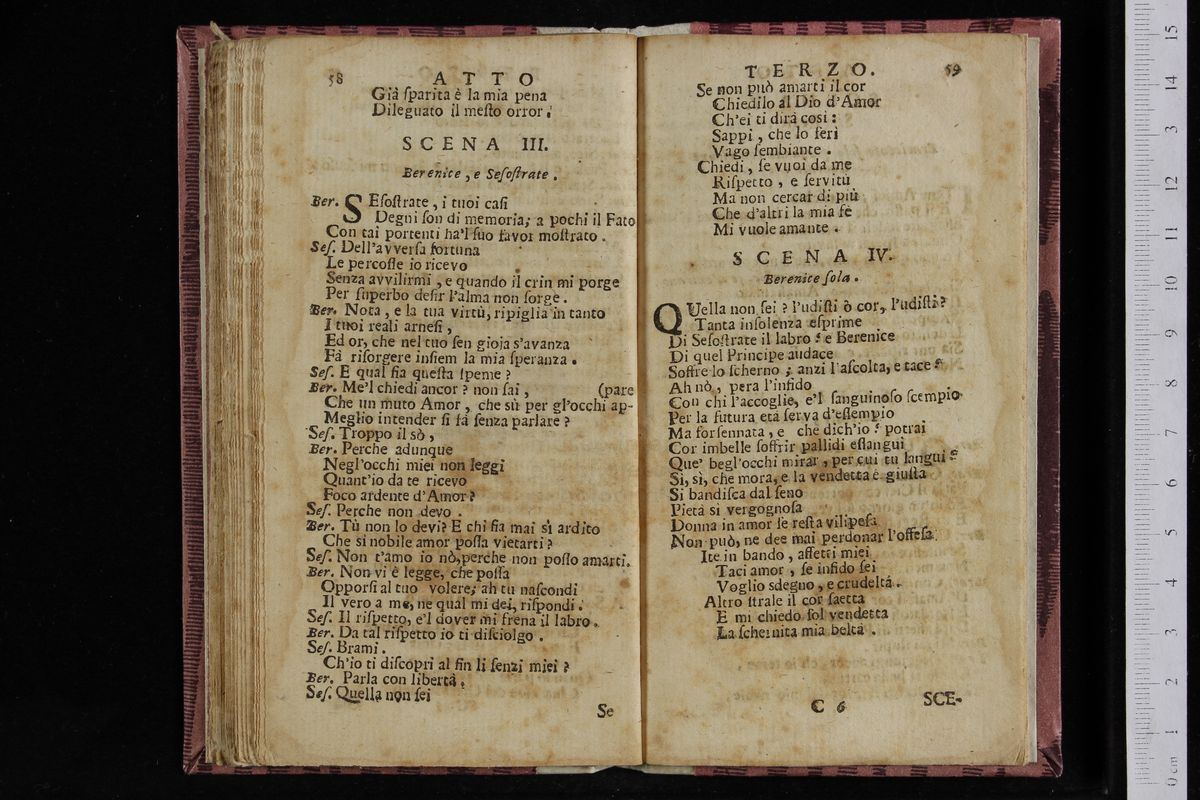 58 ATTO
Già ſparita è la mia pena
Dileguato il meſto orror.
SCENA III.
Berenice, e Seſoſtrate.
Ber. SEſoſtrate, i tuoi caſi
Degni ſon di memoria; a pochi il Fato
Con tai portenti ha'l ſuo favor moſtrato.
Seſ. Dell'avverſa fortuna
Le percoſſe io ricevo
Senza avvilirmi, e quando il crin mi porge
Per ſuperbo deſir l'alma non ſorge.
Ber. Nota, e la tua virtù, ripiglia in tanto
I tuoi reali arneſi,
Ed or, che nel tuo ſen gioja s'avanza
Fà riſorgere inſiem la mia ſperanza.
Seſ. E qual ſia queſta ſpeme?
Ber. Me'l chiedi ancor? non ſai, (pare
Che un muto Amor, che sù per gl'occhi ap-
Meglio intender ſi fà ſenza parlare?
Seſ. Troppo il sò,
Ber. Perche adunque
Negl'occhi miei non leggi
Quant'io da te ricevo
Foco ardente d'Amor?
Seſ. Perche non devo.
Ber. Tù non lo devi? E chi ſia mai sì ardito
Che sì nobile amor poſſa vietarti?
Seſ. Non t'amo io nò, perche non poſſo amarti.
Ber. Non vi è legge, che poſſa
Opporſi al tuo volere; ah tu naſcondi
Il vero a me, ne qual mi dei, riſpondi.
Seſ. Il riſpetto, e'l dover mi frena il labro.
Ber. Da tal riſpetto io ti diſciolgo.
Seſ. Brami.
Ch'io ti diſcopri al fin li ſenzi miei?
Ber. Parla con libertà.
Seſ. Quella non ſei
Se
TERZO. 59
Se non può amarti il cor
Chiedilo al Dio d'Amor
Ch'ei ti dirà così:
Sappi, che lo ferì
Vago ſembiante.
Chiedi, ſe vuoi da me
Riſpetto, e ſervitù
Ma non cercar di più
Che d'altri la mia fè
Mi vuole amante.
SCENA IV.
Berenice ſola.
QUella non ſei? l'udiſti ò cor, l'udiſti?
Tanta inſolenza eſprime
Di Seſoſtrate il labro? e Berenice
Di quel Principe audace
Soffre lo ſcherno; anzi l'aſcolta, e tace?
Ah nò, pera l'infido
Con chi l'accoglie, e'l ſanguinoſo ſcempio
Per la futura età ſerva d'eſſempio
Ma forſennata, e che dich'io? potrai
Cor imbelle ſoffrir pallidi eſſangui
Que' begl'occhi mirar, per cui tu langui?
Sì, sì, che mora, e la vendetta è giuſta
Si bandiſca dal ſeno
Pietà si vergognoſa
Donna in amor ſe reſta vilipeſa
Non può, ne dee mai perdonar l'offeſa.
Ite in bando, affetti miei
Taci amor, ſe infido ſei
Voglio sdegno, e crudeltà.
Altro ſtrale il cor ſaetta
E mi chiedo ſol vendetta
La ſchernita mia beltà.
C 6 SCE-
0 cm 1 2 3 4 5 6 7 8 9 10 11 12 13 14 15